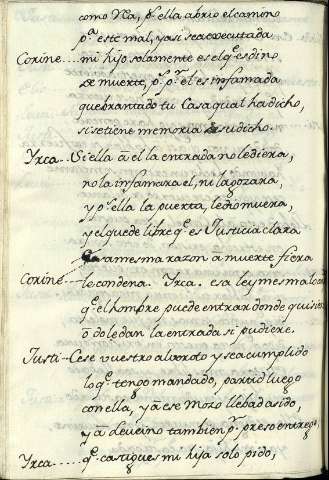 como Nra, pr. ella abrio el camino
pa. este mal, y asi sea executada
Corine.... mi hijo solamente es el q. es dino
de muerte, pr. qe. el es infamada
quebrantado tu Casa qual ha dicho,
si se tiene memoria de su dicho.
Yrca.... Si ella á el la entrada no lediera,
no la infamara el, ni la gozara,
y pr. ella la puerta, ledio muera,
y el quede libre q. es Justicia clara
esa mesma razon á muerte fiera
Corine le condena. Yrca. esa ley mesma
q. el hombre puede entrar donde quisiere
ó do le dan la entrada si pudiere.
Justi.. Cese vuestro alvoroto y sea cumplido
lo q. tengo mandado, partid luego
con ella, y á ese Mozo llebad asido,
y á Leucino tambien pr. preso entrego,
Yrca..... q. castigues mi hija solo pido,